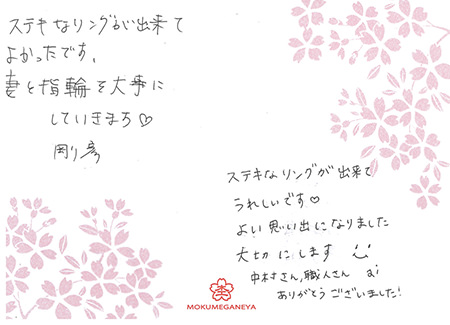 ステキなリングが出来て
よかったです。
妻と指輪を大事に
していきます♡
剛彦
ステキなリングが出来て
うれしいです♡
よい思い出になりました
大切にします
中村さん、職人さん ai
ありがとうございました!
MOKUMEGANEYA